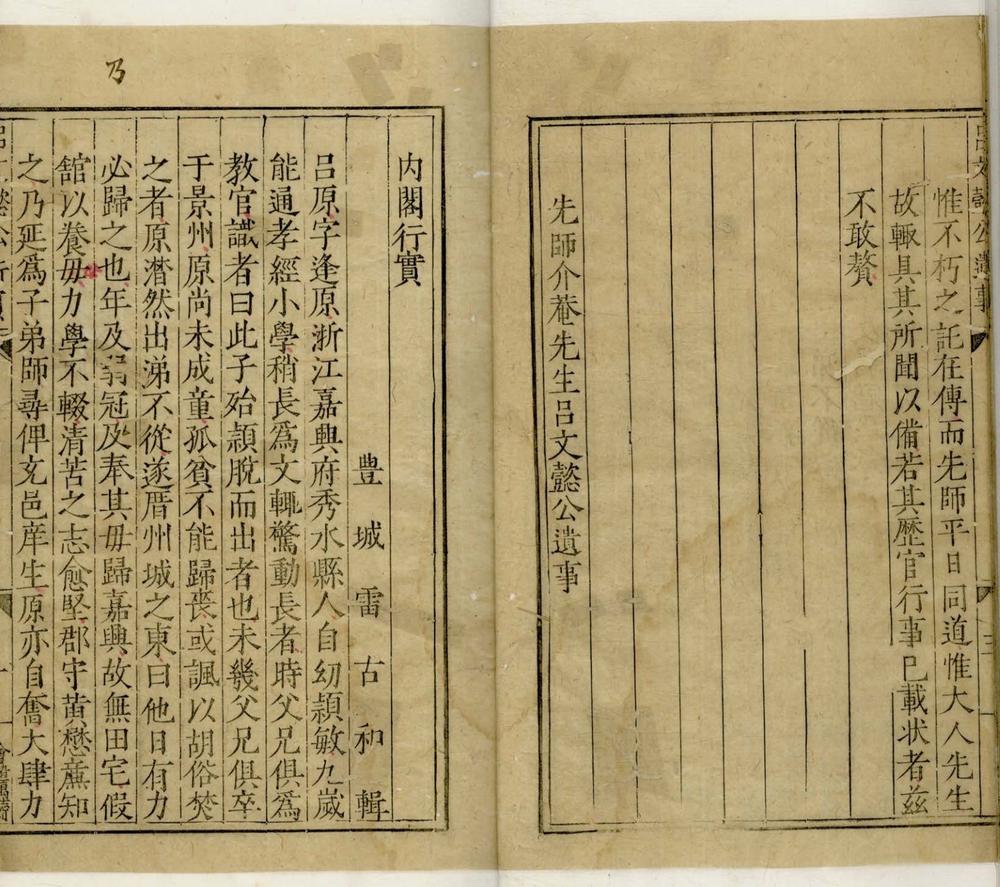 惟不朽之託在傳而先師平日同道惟大人先生
故輙具其所聞以備若其歷官行事已載狀者茲
不敢贅
先師介菴先生呂文懿公遺事
乃
內閣行實
豊城雷古和輯
呂原字逢原浙江嘉興府秀水縣人自幼頴敏九歲
能通孝經小學稍長爲文輙驚動長者時父兄俱爲
教官識者曰此子殆頴脫而出者也未幾父兄俱卒
于景州原尚未成童孤貧不能歸喪或諷以胡俗焚
之者原潸然出涕不從遂厝州城之東曰他日有力
必歸之也年及弱冠及奉其毋歸嘉興故無田宅假
舘以養毋力學不輟清苦之志愈堅郡守黃懋廉知
之乃延爲子弟師尋俾充邑庠生原亦自奮大肆力